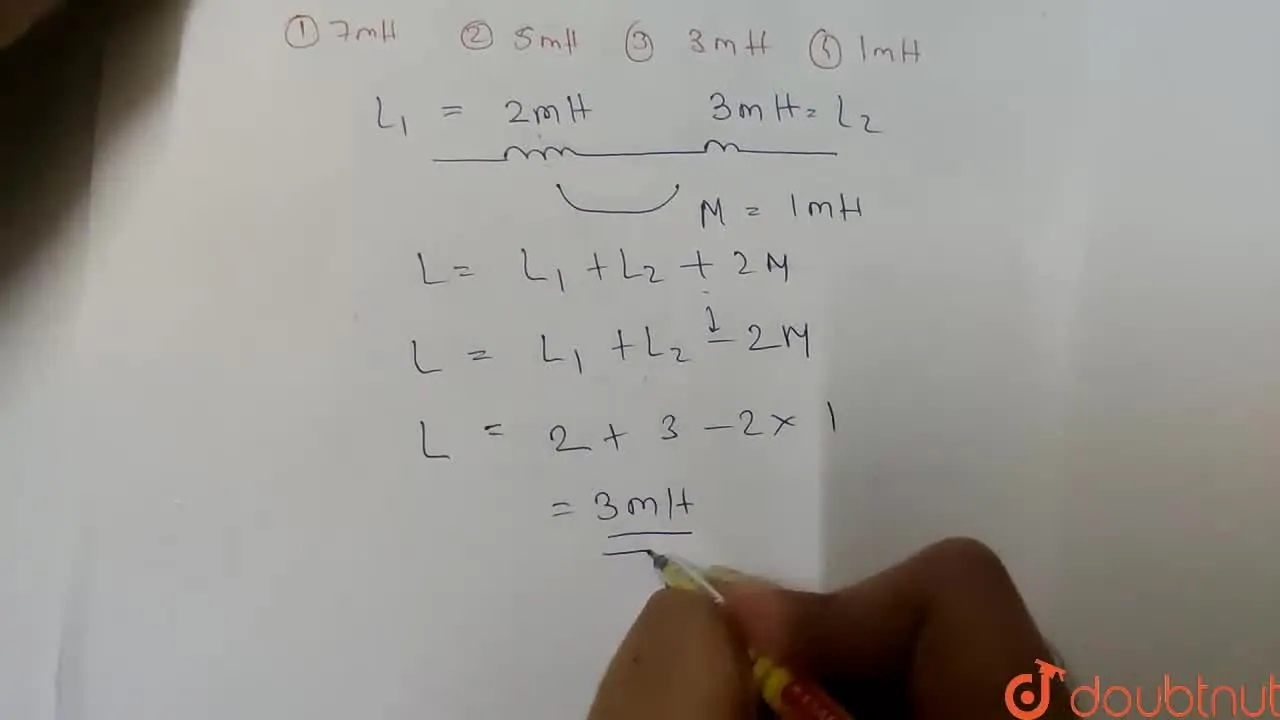 ① 7mH ② 5mH ③ 3mH ④ 1mH
L₁ = 2mH 3mH = L₂
M = 1mH
L = L₁ + L₂ + 2M
L = L₁ + L₂ - 2M
L = 2 + 3 - 2 × 1
= 3mH
doubtnut